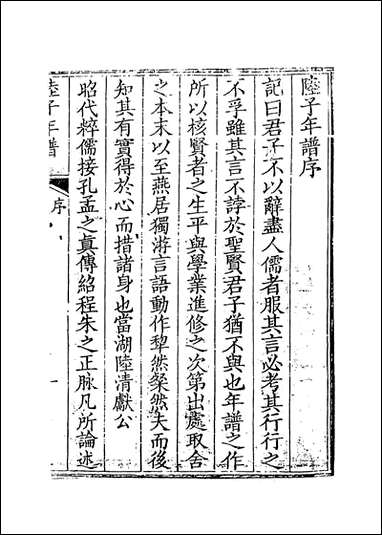 陸子年譜序
記曰君子不以辭盡人儒者服其言必考其行行之
不孚雖其言不誖於聖賢君子猶不與也年譜之作
所以核賢者之生平與學業進修之次第出處取舍
之本末以至燕居獨游言語動作犂然粲然夫而後
知其有實得於心而措諸身也當湖陸清獻公
昭代粹儒接孔孟之真傳紹程朱之正脉凡所論述
陸子年譜
序
一